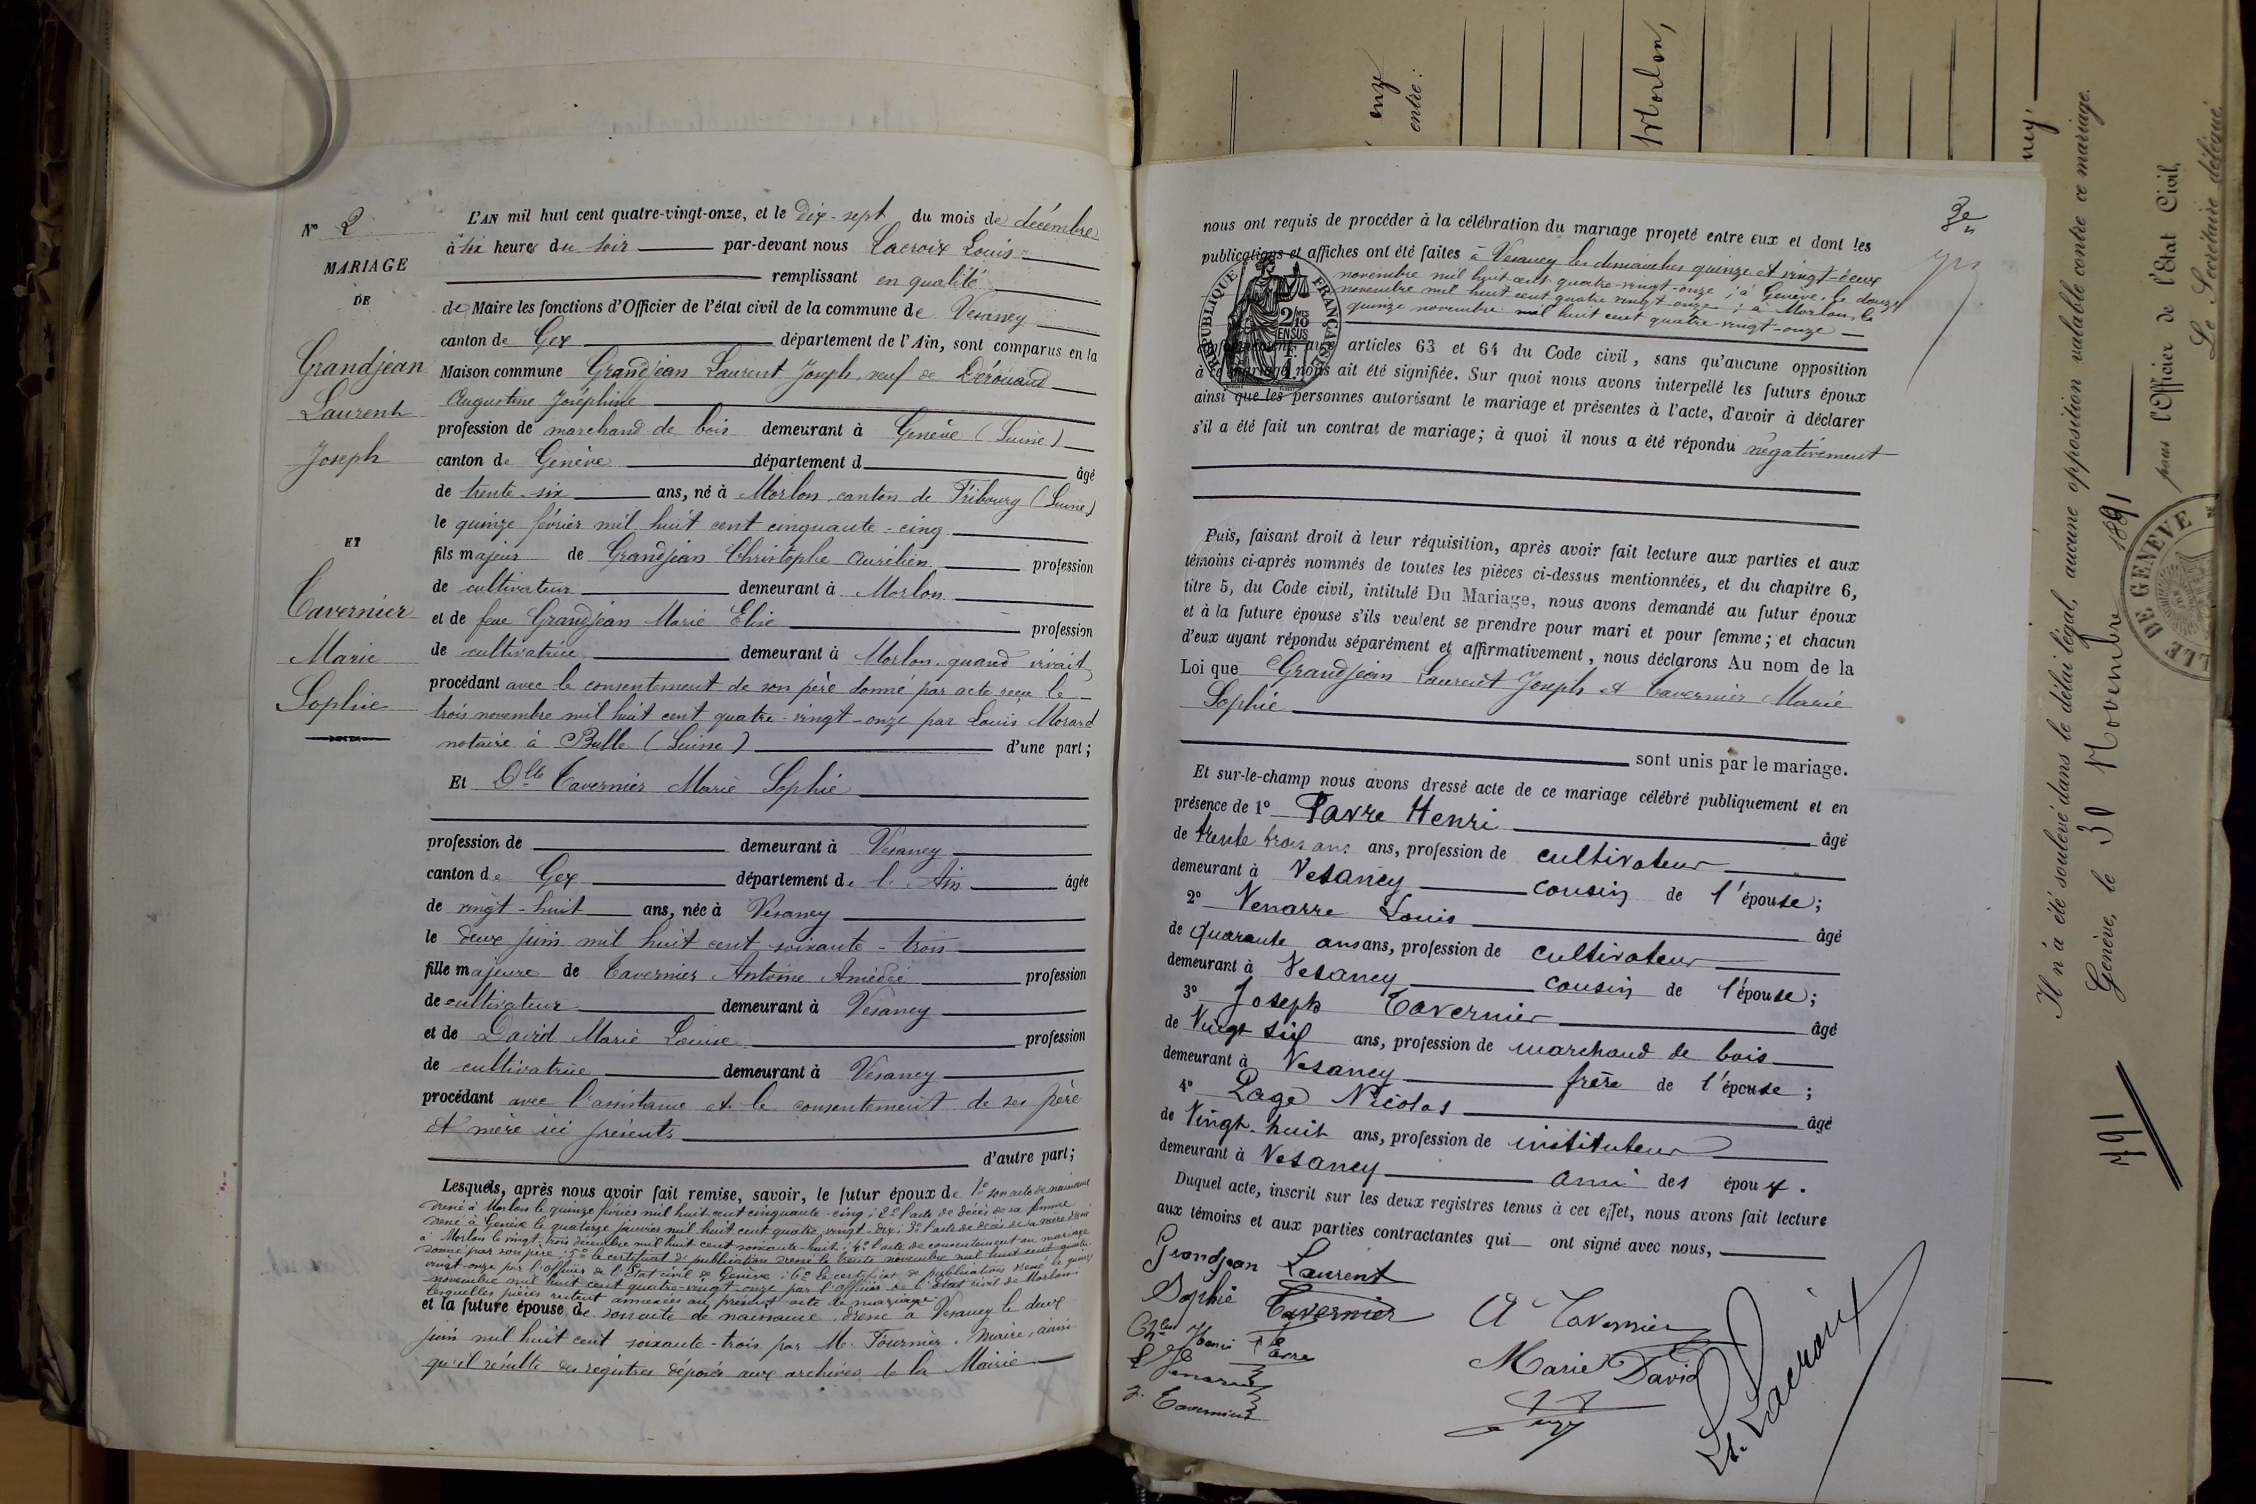 Nº 2
MARIAGE
DE
Grandjean
Laurent
Joseph
ET
Tavernier
Marie
Sophie
L'AN mil huit cent quatre-vingt-onze, et le Dix-sept du mois de décembre
à six heures du soir par-devant nous Lacroix Louis
remplissant en qualité
de Maire les fonctions d'Officier de l'état civil de la commune de Vesancy
canton de Gex département de l'Ain, sont comparus en la
Maison commune Grandjean Laurent Joseph, veuf de Dérouand
Augustine Joséphine
profession de marchand de bois demeurant à Genève (Suisse)
canton de Genève département d âgé
de trente-six ans, né à Morlon, canton de Fribourg (Suisse)
le quinze février mil huit cent cinquante-cinq
fils majeur de Grandjean Christophe Aurélien profession
de cultivateur demeurant à Morlon
et de feue Grandjean Marie Elise profession
de cultivatrice demeurant à Morlon quand vivait
procédant avec le consentement de son père donné par acte reçu le
trois novembre mil huit cent quatre-vingt-onze par Louis Morard
notaire à Bulle (Suisse) d'une part;
Et Dlle Tavernier Marie Sophie
profession de demeurant à Vesancy
canton de Gex département de l'Ain âgée
de vingt-huit ans, née à Vesancy
le deux juin mil huit cent soixante-trois
fille majeure de Tavernier Antoine Amédée profession
de cultivateur demeurant à Vesancy
et de David Marie Louise profession
de cultivatrice demeurant à Vesancy
procédant avec l'assistance et le consentement de ses père
et mère ici présents
d'autre part;
Lesquels, après nous avoir fait remise, savoir, le futur époux de 1º son acte de naissance
dressé à Morlon le quinze février mil huit cent cinquante-cinq; 2º l'acte de décès de sa femme
dressé à Genève le quatorze janvier mil huit cent quatre-vingt-dix; 3º l'acte de décès de sa mère dressé
à Morlon le vingt-trois décembre mil huit cent soixante-huit; 4º l'acte de consentement au mariage
donné par son père; 5º le certificat de publication dressé le trente novembre mil huit cent quatre
vingt-onze par l'officier de l'Etat civil de Genève; 6º le certificat de publications dressé le quinze
novembre mil huit cent quatre-vingt-onze par l'officier de l'Etat civil de Morlon
lesquelles pièces restent annexées au présent acte de mariage
et la future épouse de son acte de naissance, dressé à Vesancy le deux
juin mil huit cent soixante-trois par M. Fournier, Maire, ainsi
qu'il résulte des registres déposés aux archives de la Mairie
3e
nous ont requis de procéder à la célébration du mariage projeté entre eux et dont les
publications et affiches ont été faites à Vesancy les dimanches quinze et vingt-deux
novembre mil huit cent quatre-vingt-onze; à Genève, le douze
novembre mil huit cent quatre-vingt-onze; à Morlon, le
quinze novembre mil huit cent quatre-vingt-onze
RÉPUBLIQUE FRANÇAISE
2/10 EN SUS
conformément aux articles 63 et 64 du Code civil, sans qu'aucune opposition
à ce mariage nous ait été signifiée. Sur quoi nous avons interpellé les futurs époux
ainsi que les personnes autorisant le mariage et présentes à l'acte, d'avoir à déclarer
s'il a été fait un contrat de mariage; à quoi il nous a été répondu négativement
Puis, faisant droit à leur réquisition, après avoir fait lecture aux parties et aux
témoins ci-après nommés de toutes les pièces ci-dessus mentionnées, et du chapitre 6,
titre 5, du Code civil, intitulé Du Mariage, nous avons demandé au futur époux
et à la future épouse s'ils veulent se prendre pour mari et pour femme; et chacun
d'eux ayant répondu séparément et affirmativement, nous déclarons Au nom de la
Loi que Grandjean Laurent Joseph et Tavernier Marie
Sophie
sont unis par le mariage.
Et sur-le-champ nous avons dressé acte de ce mariage célébré publiquement et en
présence de 1º Favre Henri âgé
de trente trois ans ans, profession de cultivateur
demeurant à Vesancy cousin de l'épouse;
2º Venarre Louis âgé
de quarante ans ans, profession de cultivateur
demeurant à Vesancy cousin de l'épouse;
3º Joseph Tavernier âgé
de Vingt six ans, profession de marchand de bois
demeurant à Vesancy frère de l'épouse;
4º Page Nicolas âgé
de Vingt-huit ans, profession de instituteur
demeurant à Vesancy ami des époux.
Duquel acte, inscrit sur les deux registres tenus à cet effet, nous avons fait lecture
aux témoins et aux parties contractantes qui ont signé avec nous,
Grandjean Laurent
Sophie Tavernier
A Tavernier
Henri Favre
Marie David
J. Tavernier
Ls. Lacroix
onze
entre:
Morlon,
Il n'a été soulevé dans le délai légal, aucune opposition valable contre ce mariage.
Genève, le 30 Novembre 1891
pour l'Officier de l'Etat Civil,
Le Secrétaire délégué
VILLE DE GENEVE
791